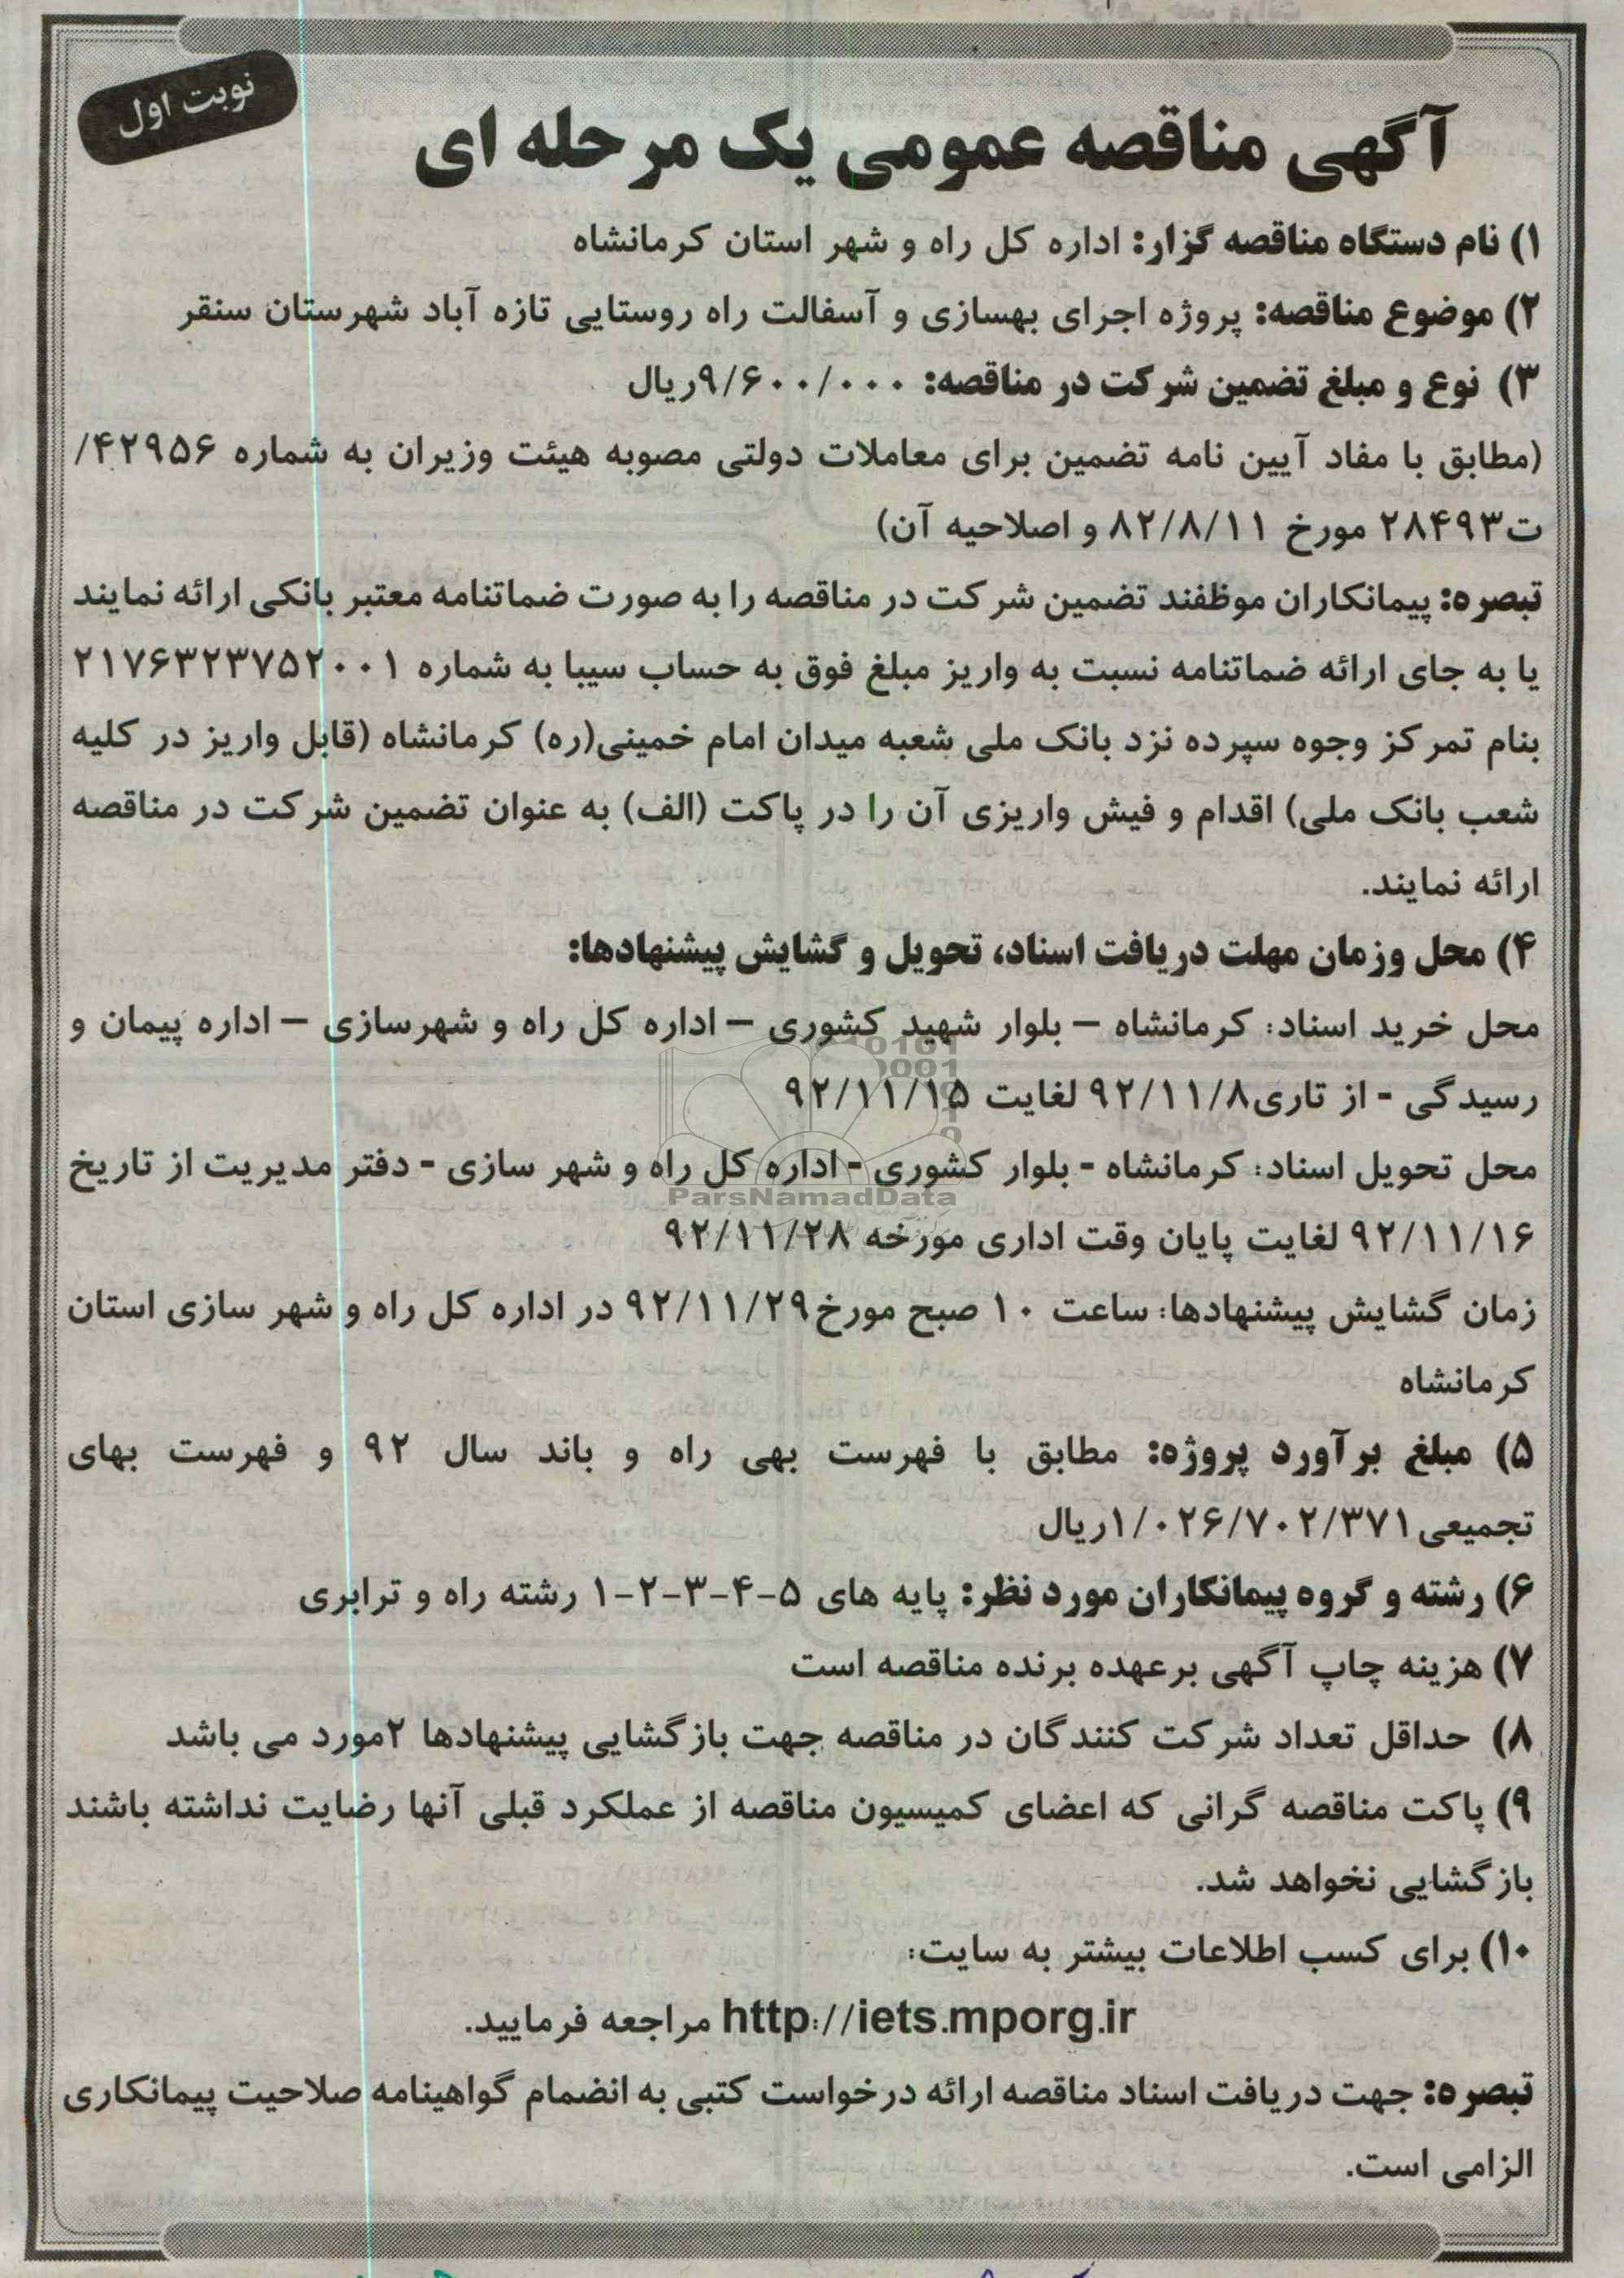 نوبت اول
آگهی مناقصه عمومی یک مرحله ای
۱) نام دستگاه مناقصه گزار: اداره کل راه و شهر استان کرمانشاه
۲) موضوع مناقصه: پروژه اجرای بهسازی و آسفالت راه روستایی تازه آباد شهرستان سنقر
۳) نوع و مبلغ تضمین شرکت در مناقصه: ۹/۶۰۰/۰۰۰ریال
(مطابق با مفاد آیین نامه تضمین برای معاملات دولتی مصوبه هیئت وزیران به شماره ۴۲۹۵۶/
ت۲۸۴۹۳ مورخ ۸۲/۸/۱۱ و اصلاحیه آن)
تبصره: پیمانکاران موظفند تضمین شرکت در مناقصه را به صورت ضماتنامه معتبر بانکی ارائه نمایند
یا به جای ارائه ضماتنامه نسبت به واریز مبلغ فوق به حساب سیبا به شماره ۲۱۷۶۳۲۳۷۵۲۰۰۱
بنام تمرکز وجوه سپرده نزد بانک ملی شعبه میدان امام خمینی(ره) کرمانشاه (قابل واریز در کلیه
شعب بانک ملی) اقدام و فیش واریزی آن را در پاکت (الف) به عنوان تضمین شرکت در مناقصه
ارائه نمایند.
۴) محل وزمان مهلت دریافت اسناد، تحویل و گشایش پیشنهادها:
محل خرید اسناد: کرمانشاه – بلوار شهید کشوری – اداره کل راه و شهرسازی – اداره پیمان و
رسیدگی - از تاری۹۲/۱۱/۸ لغایت ۹۲/۱۱/۱۵
محل تحویل اسناد: کرمانشاه - بلوار کشوری - اداره کل راه و شهر سازی - دفتر مدیریت از تاریخ
۹۲/۱۱/۱۶ لغایت پایان وقت اداری مورخه ۹۲/۱۱/۲۸
زمان گشایش پیشنهادها: ساعت ۱۰ صبح مورخ۹۲/۱۱/۲۹ در اداره کل راه و شهر سازی استان
کرمانشاه
۵) مبلغ برآورد پروژه: مطابق با فهرست بهی راه و باند سال ۹۲ و فهرست بهای
تجمیعی۱/۰۲۶/۷۰۲/۳۷۱ریال
۶) رشته و گروه پیمانکاران مورد نظر: پایه های ۵-۴-۳-۲-۱ رشته راه و ترابری
۷) هزینه چاپ آگهی برعهده برنده مناقصه است
۸) حداقل تعداد شرکت کنندگان در مناقصه جهت بازگشایی پیشنهادها ۲مورد می باشد
۹) پاکت مناقصه گرانی که اعضای کمیسیون مناقصه از عملکرد قبلی آنها رضایت نداشته باشند
بازگشایی نخواهد شد.
۱۰) برای کسب اطلاعات بیشتر به سایت:
http://iets.mporg.ir مراجعه فرمایید.
تبصره: جهت دریافت اسناد مناقصه ارائه درخواست کتبی به انضمام گواهینامه صلاحیت پیمانکاری
الزامی است.
ParsNamadData